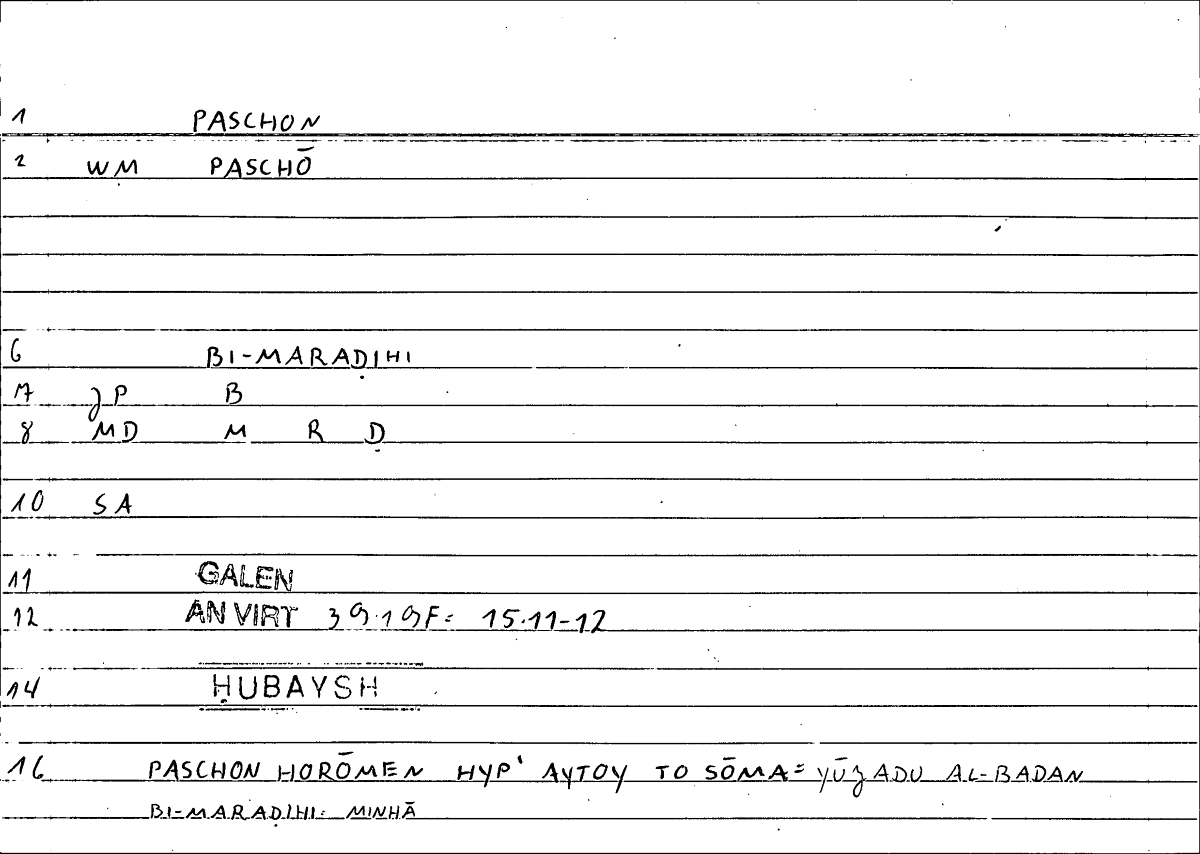 1 PASCHON
2 WM PASCHŌ
6 BI-MARAḌIHI
7 ȷP B
8 MD M R Ḍ
10 SA
11 GALEN
12 AN VIRT 39.19F: 15.11-12
14 ḤUBAYSH
16 PASCHON HORŌMEN HYP' AYTOY TO SŌMA: YŪȷADU AL-BADAN
BI-MARAḌIHI: MINHĀ